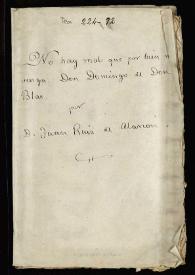 Tea 224-72
No hay mal que por bien n
venga. Don Domingo de Don
Blas.
por
D. Juan Ruiz de Alarcon.